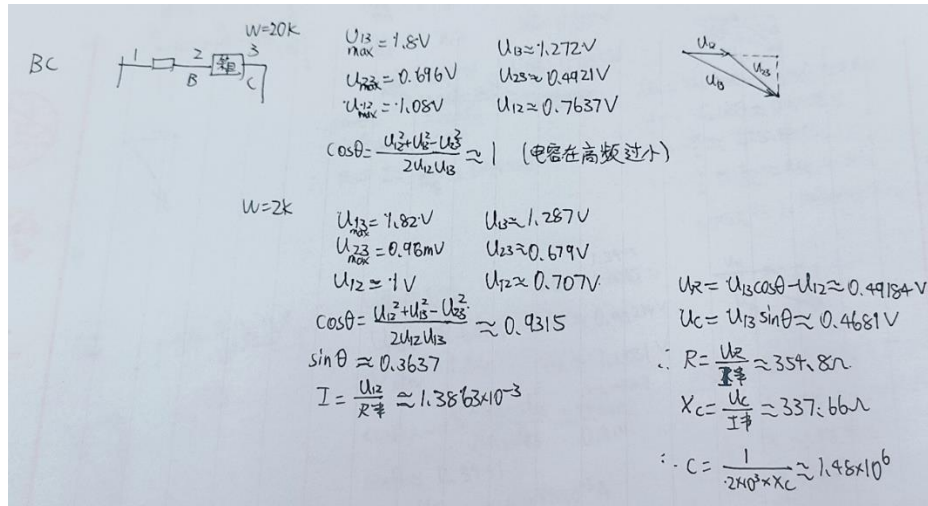 BC
W=20K
1 2 3
B C
U13max=1.8V U13≈1.272V
U23max=0.696V U23≈0.4921V
U12max=1.08V U12≈0.7637V
cosθ=(U12²+U13²-U23²)/(2U12U13)≈1 (电容在高频过小)
U12
U23
U13
W=2K
U13max=1.82V U13≈1.287V
U23max=0.96mV U23≈0.679V
U12≈1V U12≈0.707V
cosθ=(U12²+U13²-U23²)/(2U12U13)≈0.9315
sinθ≈0.3637
I=U12/R串≈1.3863×10⁻³
UR=U13cosθ-U12≈0.49184V
UC=U13sinθ≈0.4681V
∴R=UR/I串≈354.8Ω
XC=UC/I串≈337.66Ω
∴C=1/(2×10³×XC)≈1.48×10⁶